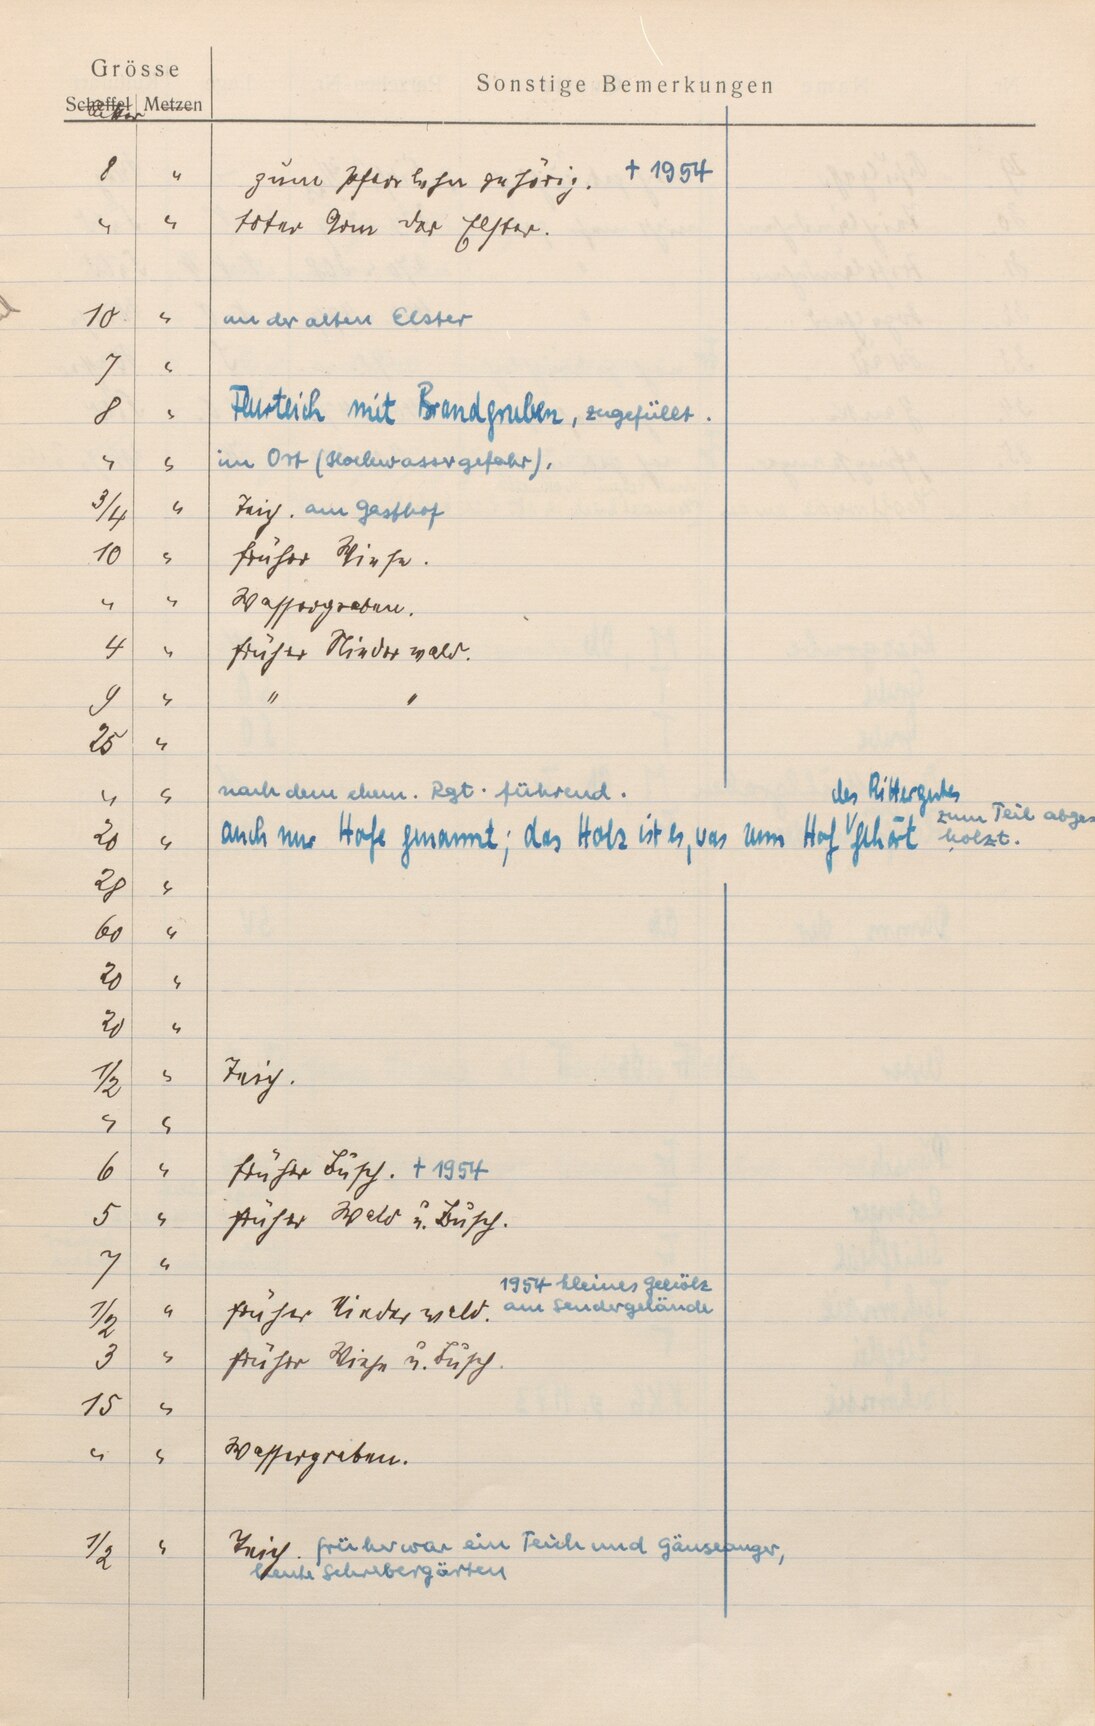 Grösse
Sonstige Bemerkungen
Scheffel Metzen
Acker
8 " zum Pfarrlehn gehörig. † 1954
" " toter Arm der Elster.
10 " an der alten Elster
7 "
8 " Flurteich mit Brandgruben, zugefüllt.
" " im Ort (Hochwassergefahr).
3/4 " Teich. am Gasthof
10 " früher Wiese.
" " Wassergraben.
4 " früher Niederwald.
9 " " "
25 "
" " nach dem ehem. Rgt. führend.
des Rittergutes
20 " auch nur Hofe genannt; das Holz ist es, was zum Hof gehört zum Teil abge
holzt.
28 "
60 "
20 "
20 "
1/2 " Teich.
" "
6 " früher Busch. † 1954
5 " früher Wald u. Busch.
7 "
1954 kleines Gehölz
1/2 " früher Niederwald. am Sendergelände
3 " früher Wiese u. Busch.
15 "
" " Wassergraben.
1/2 " Teich. früher war ein Teich und Gänseanger,
heute Schrebergärten